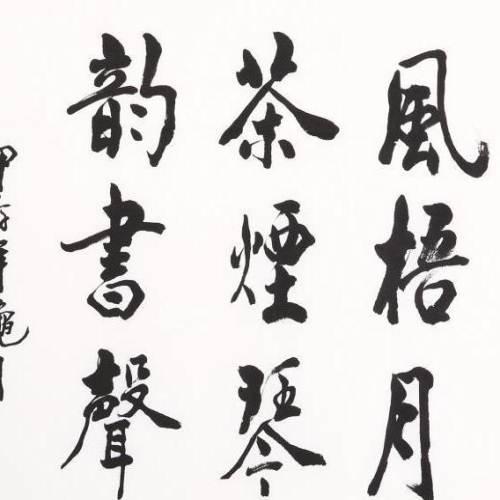 風梧月
茶煙琴
韵書聲